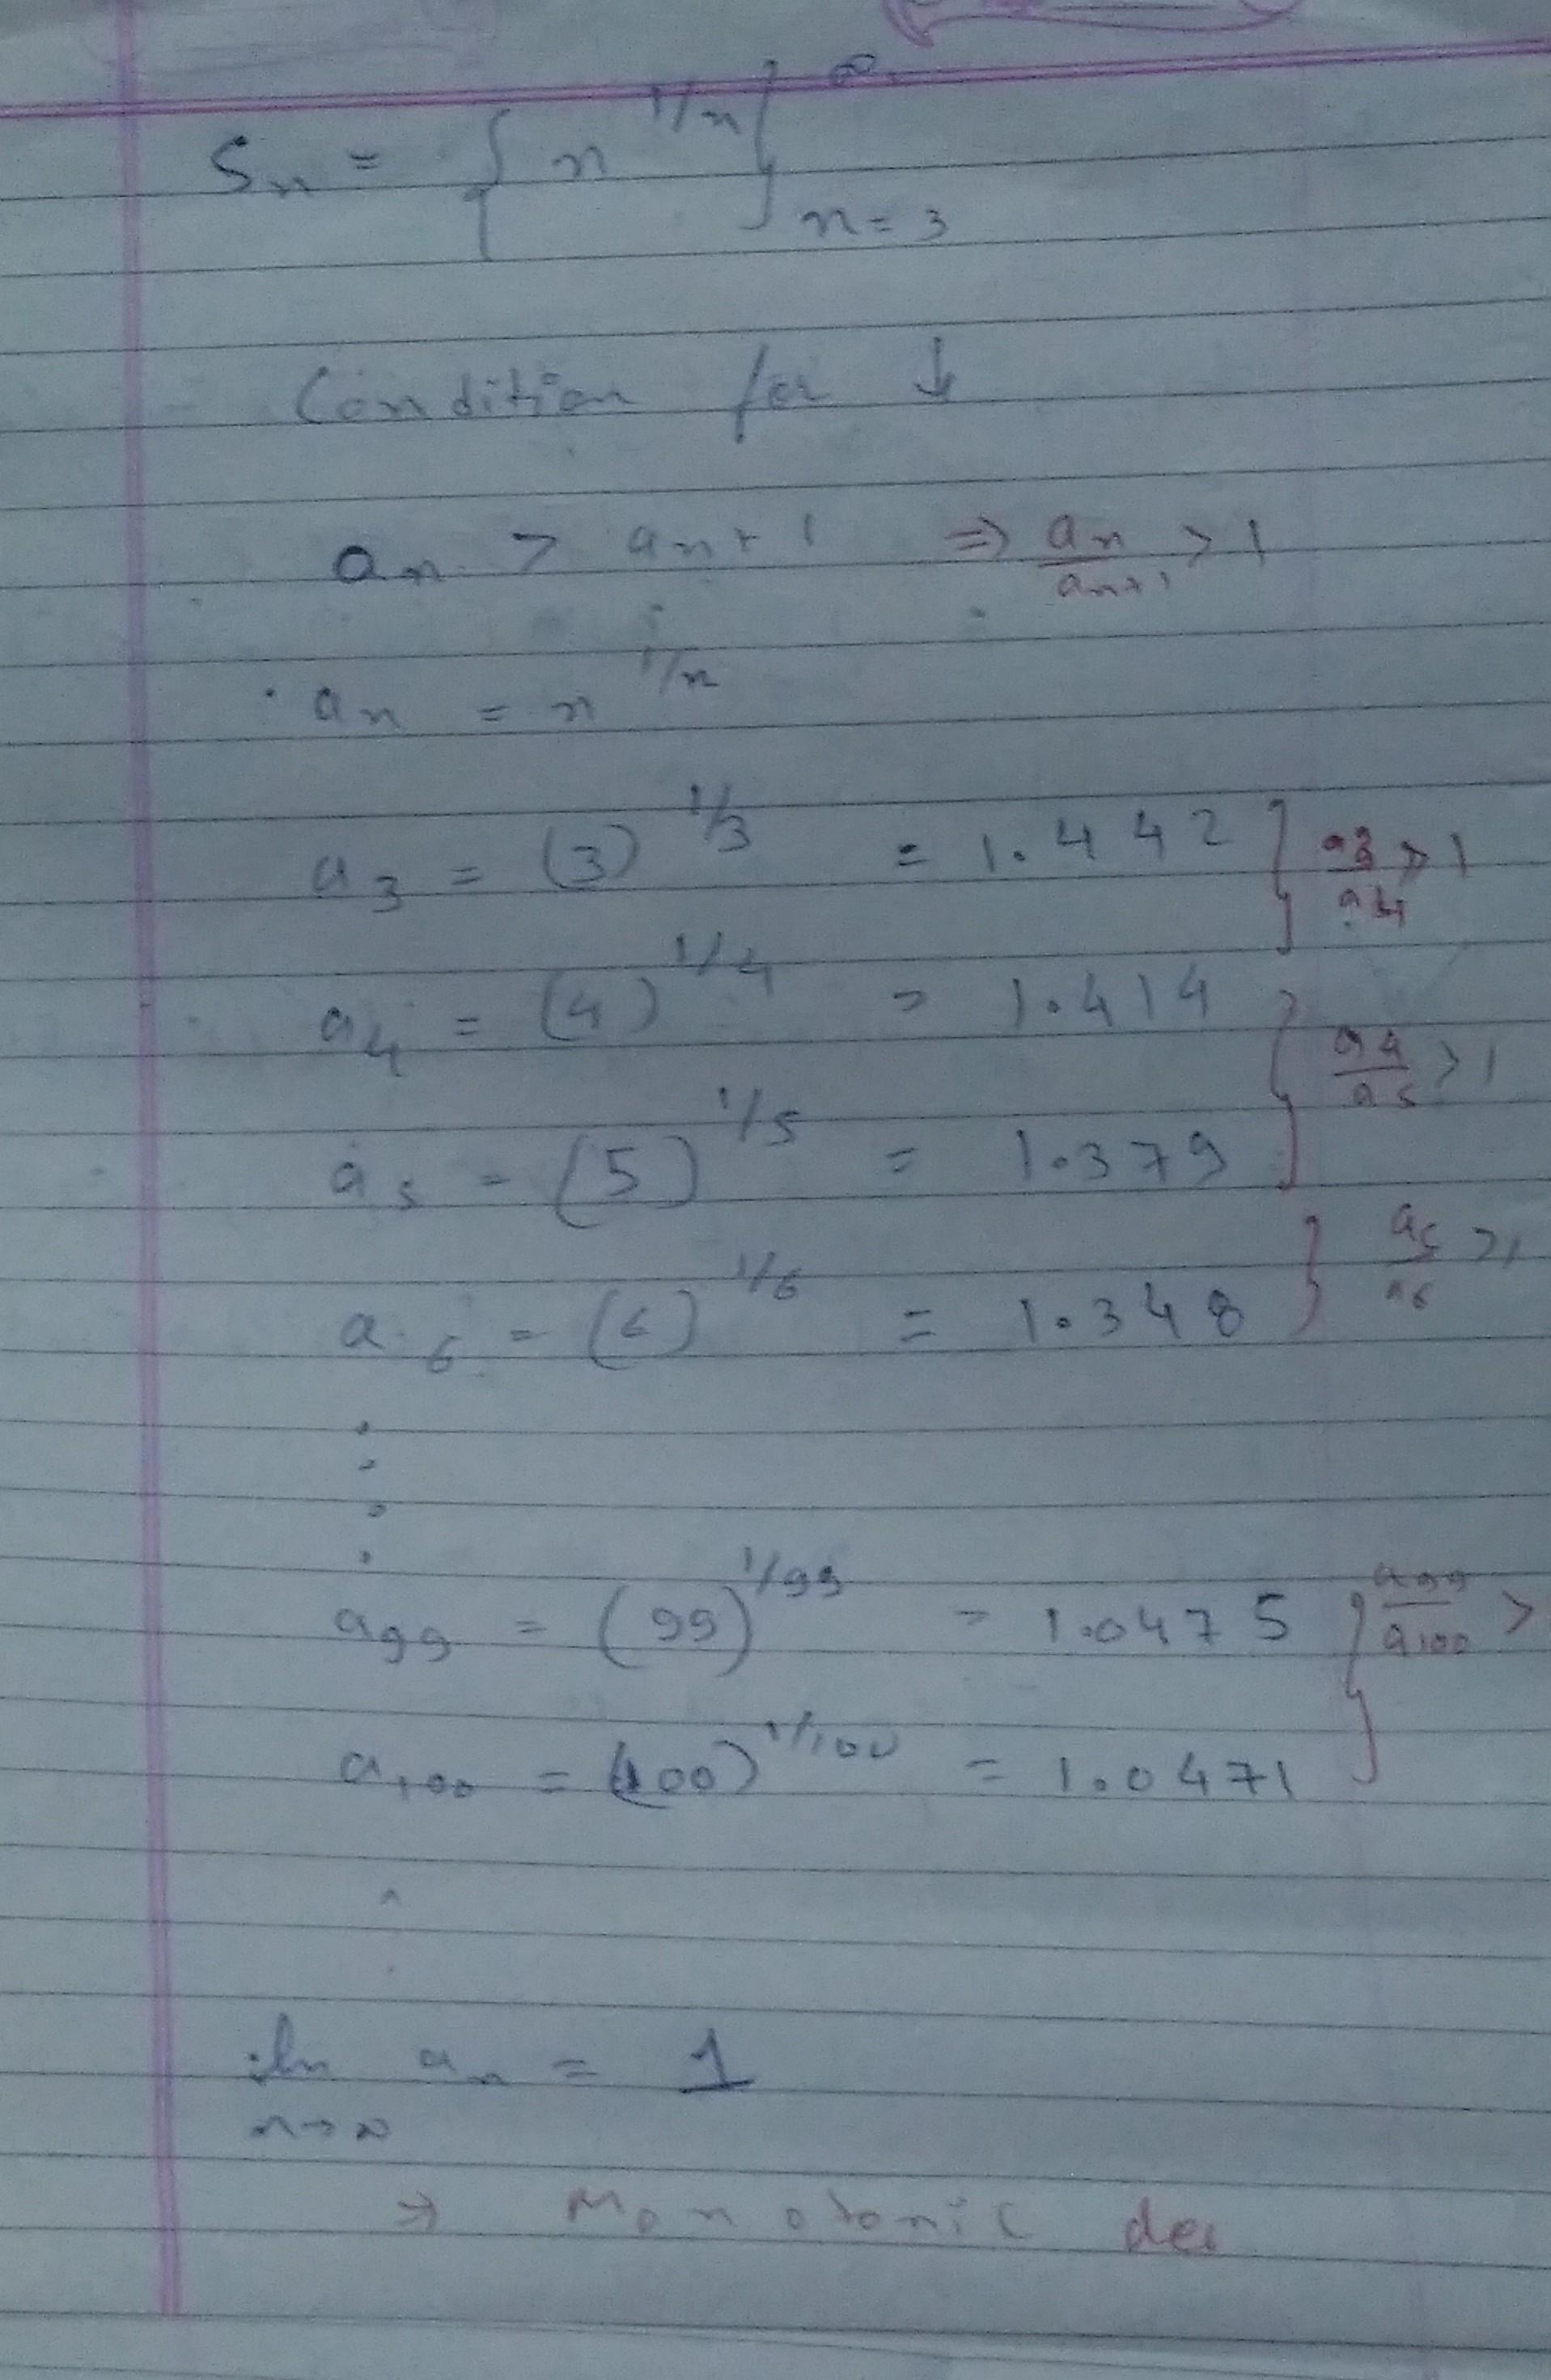 Sn = { n^1/n }^∞ n=3
Condition for ↓
an > an+1 ⇒ an/an+1 > 1
an = n^1/n
a3 = (3)^1/3 = 1.442 } a3/a4 > 1
a4 = (4)^1/4 = 1.414 } a4/a5 > 1
a5 = (5)^1/5 = 1.379
a6 = (6)^1/6 = 1.348 } a5/a6 > 1
a99 = (99)^1/99 = 1.0475 } a99/a100 >
a100 = (100)^1/100 = 1.0471
an = 1
n→∞
⇒ Monotonic dec